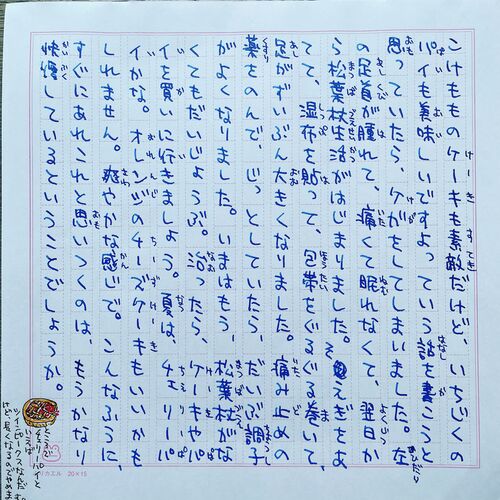 こけもものケーキも素敵だけど、いちじくの
パイも美味しいですよっていう話を書こうと
思っていたら、ケガをしてしまいました。左
の足首が腫れて、痛くて眠れなくて、翌日か
ら松葉杖生活がはじまりました。そえぎをあ
てて、湿布を貼って、包帯をぐるぐる巻いて、
足がずいぶん大きくなりました。痛み止めの
薬をのんで、じっとしていたら、だいぶ調子
がよくなりました。いまはもう、松葉杖がな
くてもだいじょうぶ。治ったら、ケーキやパ
イを買いに行きましょう。夏は、チェリーパ
イかな。オレンジのチーズケーキもいいかも
しれません。爽やかな感じで。こんなふうに、
すぐにあれこれと思いつくのは、もうかなり
快復しているということでしょうか。
ところで
チェリーパイと
いえば
ツインピークスなんだ
けど、長くなるのでやめま
カエル 20×15